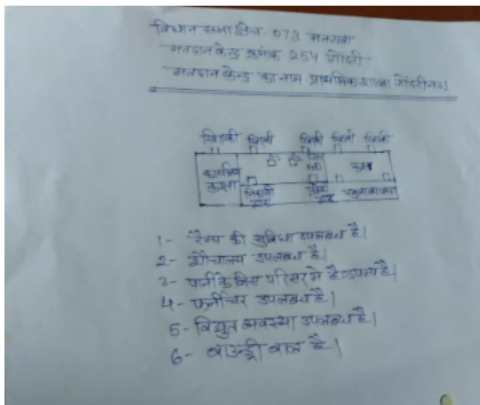 विधानसभा क्षेत्र- 073 मनगवां
मतदान केन्द्र क्रमांक 254 गोंदरी
मतदान केन्द्र का नाम प्राथमिक शाला गोंदरी नं.1
खिडकी खिडकी खिडकी खिडकी खिडकी
कक्ष
द्वार द्वार
1- रैम्प की सुविधा उपलब्ध है।
2- शौचालय उपलब्ध है।
3- पानी के लिए परिसर मे हैण्डपम्प है।
4- फर्नीचर उपलब्ध है।
5- विद्युत व्यवस्था उपलब्ध है।
6- बाउन्ड्री वाल है।